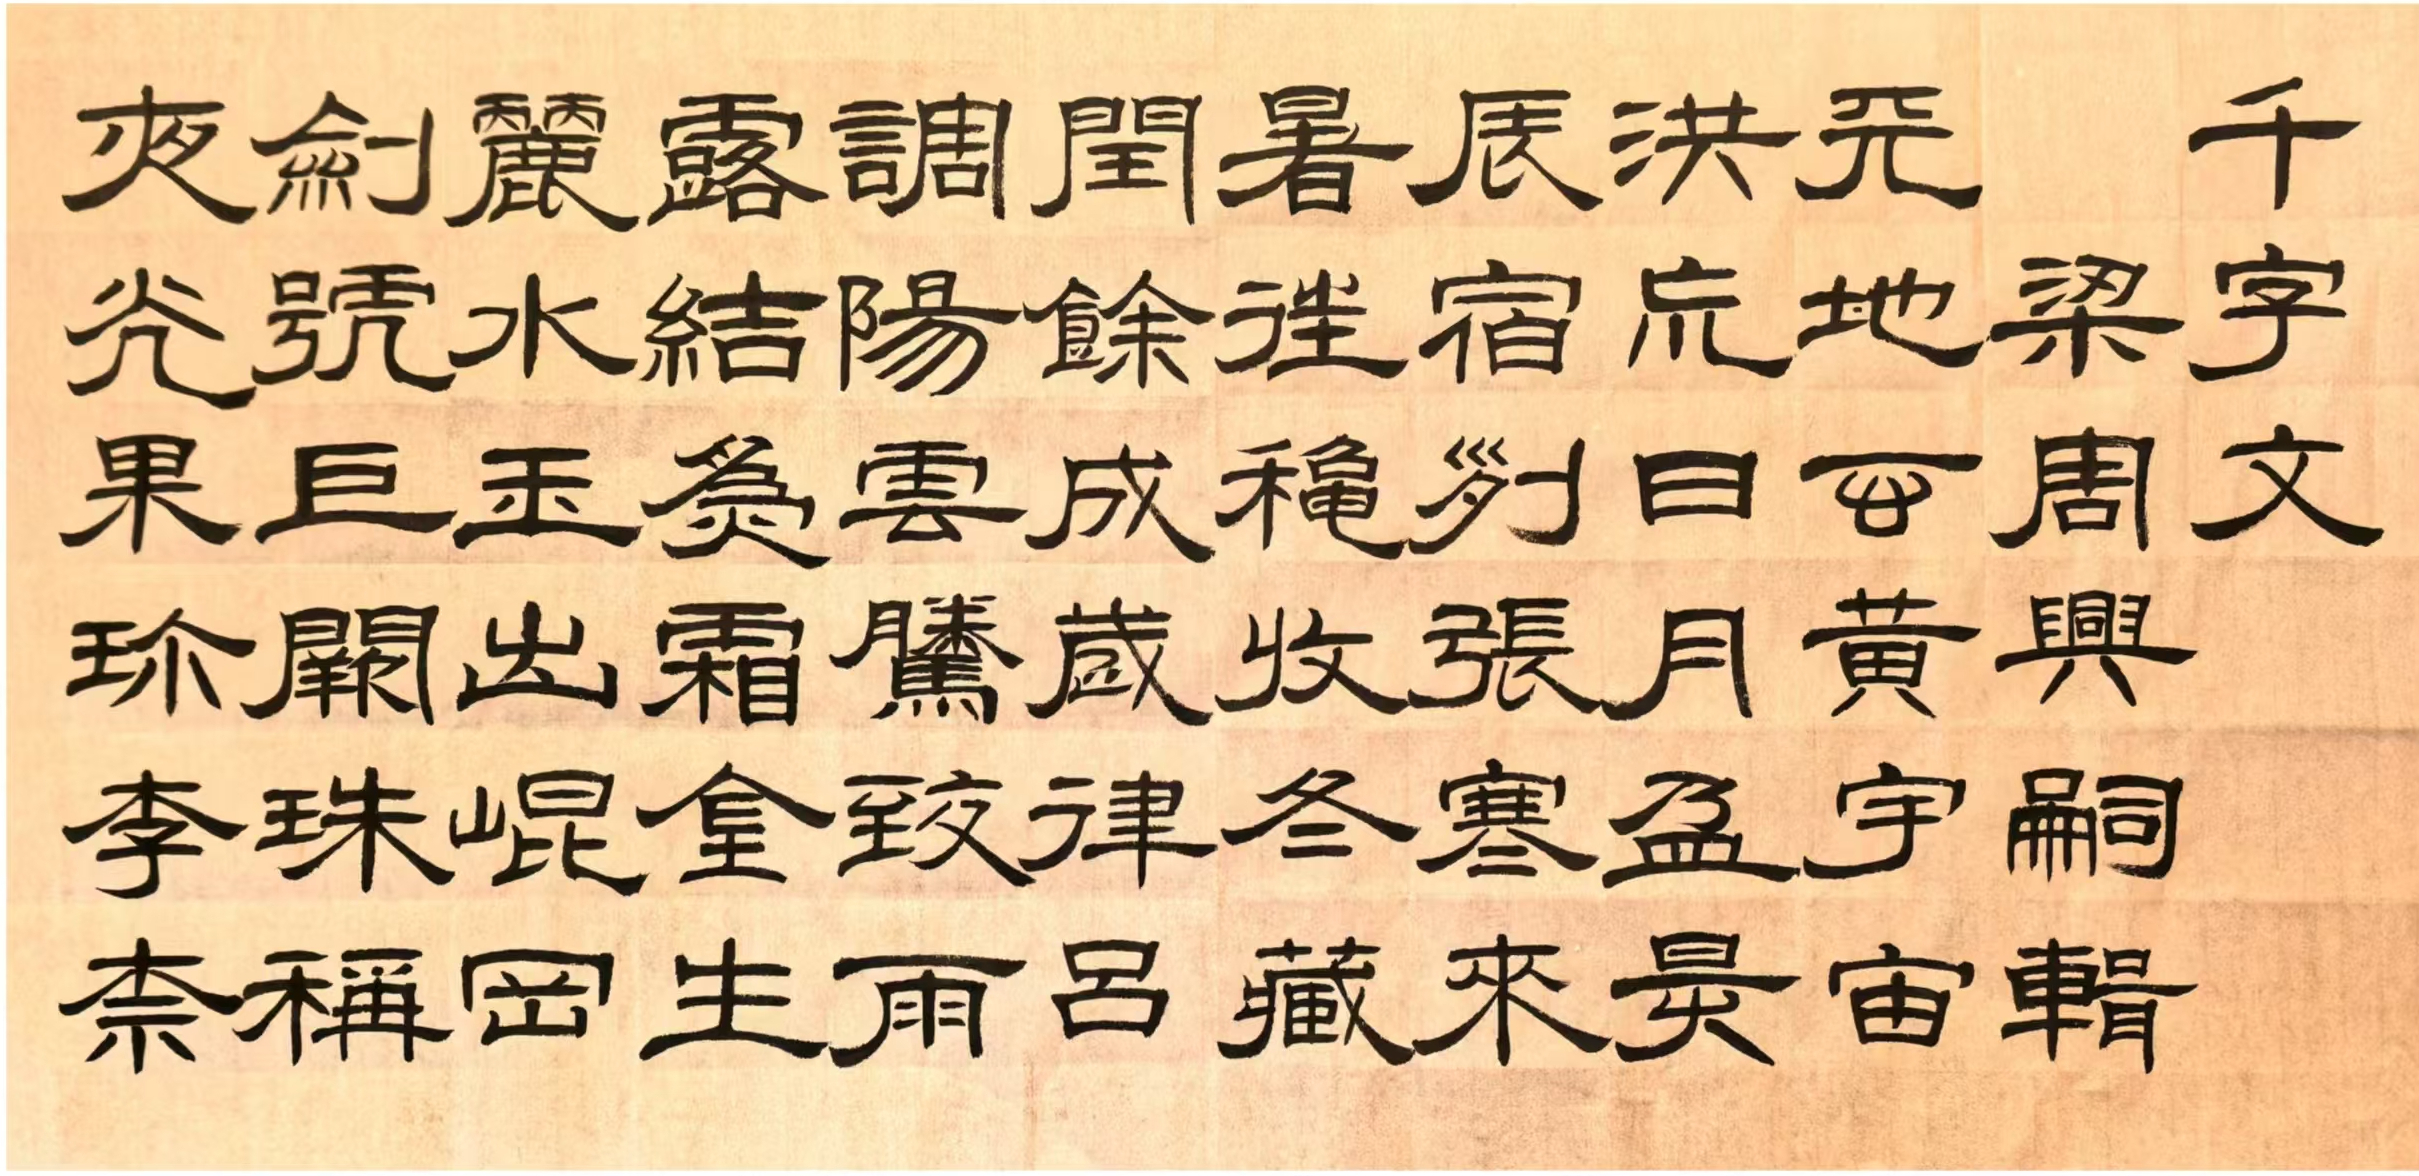 千字文
梁周興嗣輯
天地玄黃宇宙
洪荒日月盈昃
辰宿列張寒來
暑往穐收冬藏
閏餘成歲律呂
調陽雲騰致雨
露結為霜金生
麗水玉出崐岡
劍號巨闕珠稱
夜光果珎李柰